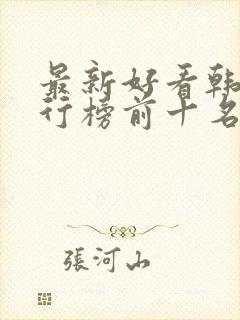 最新好看韩
行榜前十名
張河山